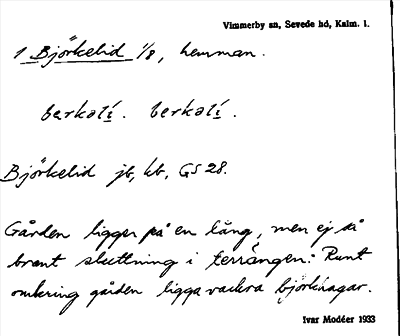 Vimmerby sn, Sevede hd, Kalm. l.
1 Björkelid 1/8, hemman.
bərkəlí. bərkəlí.
Björkelid jb, kb, GS 28.
Gården ligger på en lång, men ej så
brant sluttning i terrängen. Runt
omkring gården ligga vackra björkhagar.
Ivar Modéer 1933